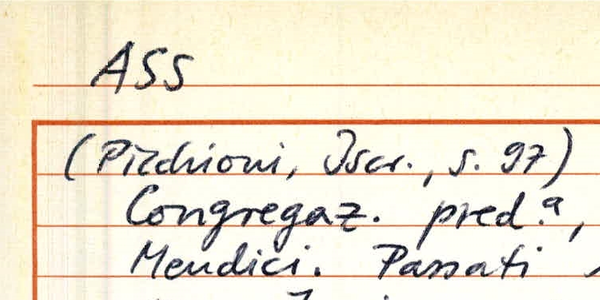 ASS
(Picchioni, Iscr., s. 97)
Congregaz. pred.ª,
Mendici. Passati